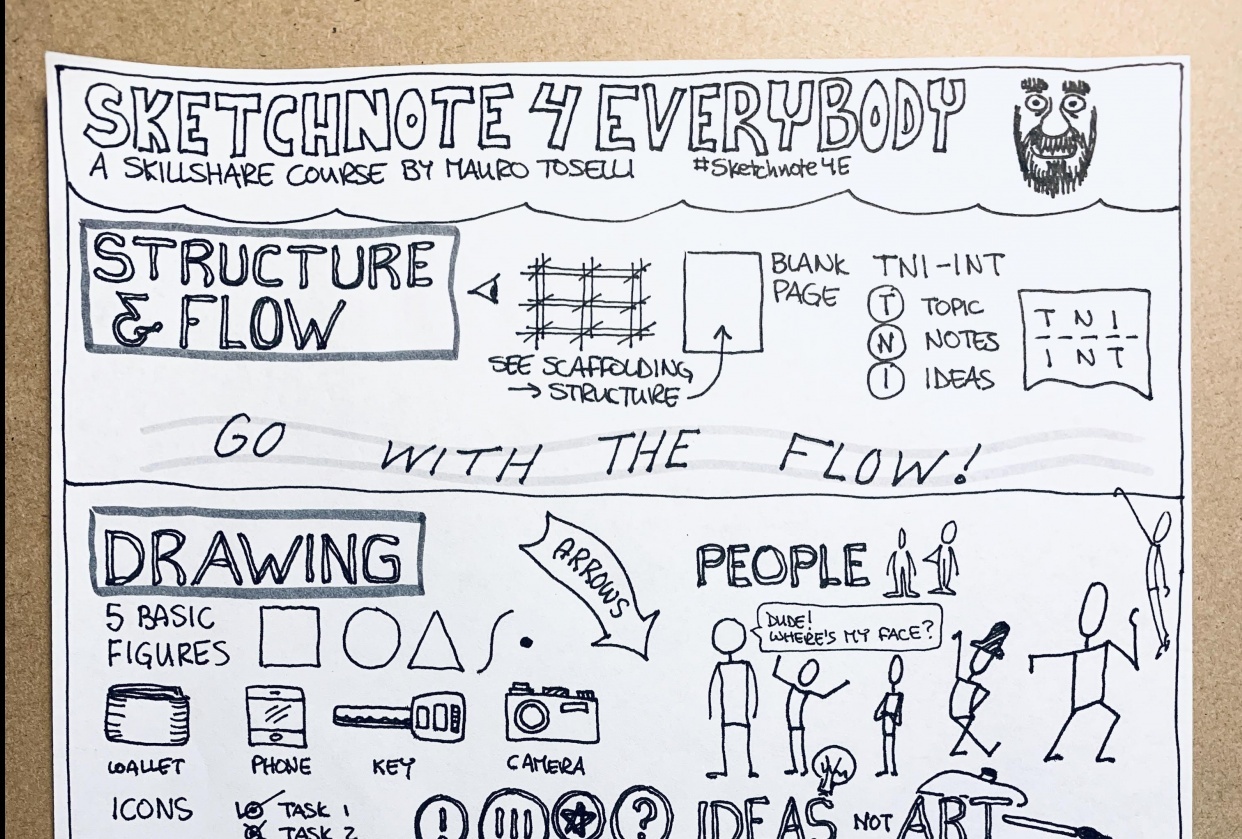 SKETCHNOTE 4 EVERYBODY
A SKILLSHARE COURSE BY MAURO TOSELLI #Sketchnote4E
STRUCTURE
& FLOW
SEE SCAFFOLDING
→ STRUCTURE
BLANK
PAGE
TNI-INT
T TOPIC
N NOTES
I IDEAS
T N I
I N T
GO WITH THE FLOW!
DRAWING
5 BASIC
FIGURES
ARROWS
WALLET PHONE KEY CAMERA
ICONS
TASK 1
TASK 2
! ?
PEOPLE
DUDE!
WHERE'S MY FACE?
IDEAS NOT ART